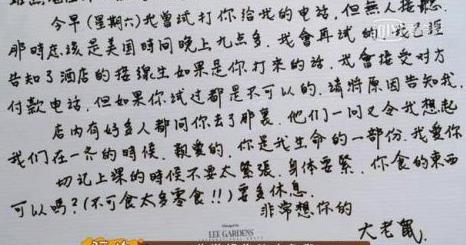 今早(星期六)我曾試打你給我的电话，但無人接聽.
那時应該是美国時间晚上九点多，我會再試的，我已經
告知了酒店的接線生如果是你打來的话，我會接受对方
付款电话，但如果你試过都是不可以的，請將原因告知我.
店内有好多人都问你去了那裏，他们一问又令我想起
我们在一齐的時候，親爱的，你是我生命的一部份，我爱你
切記上課的時候不要太緊張，身体要緊，你食的東西
可以吗？(不可食太多零食!!)要多休息.
非常想你的
大老鼠.
LEE GARDENS